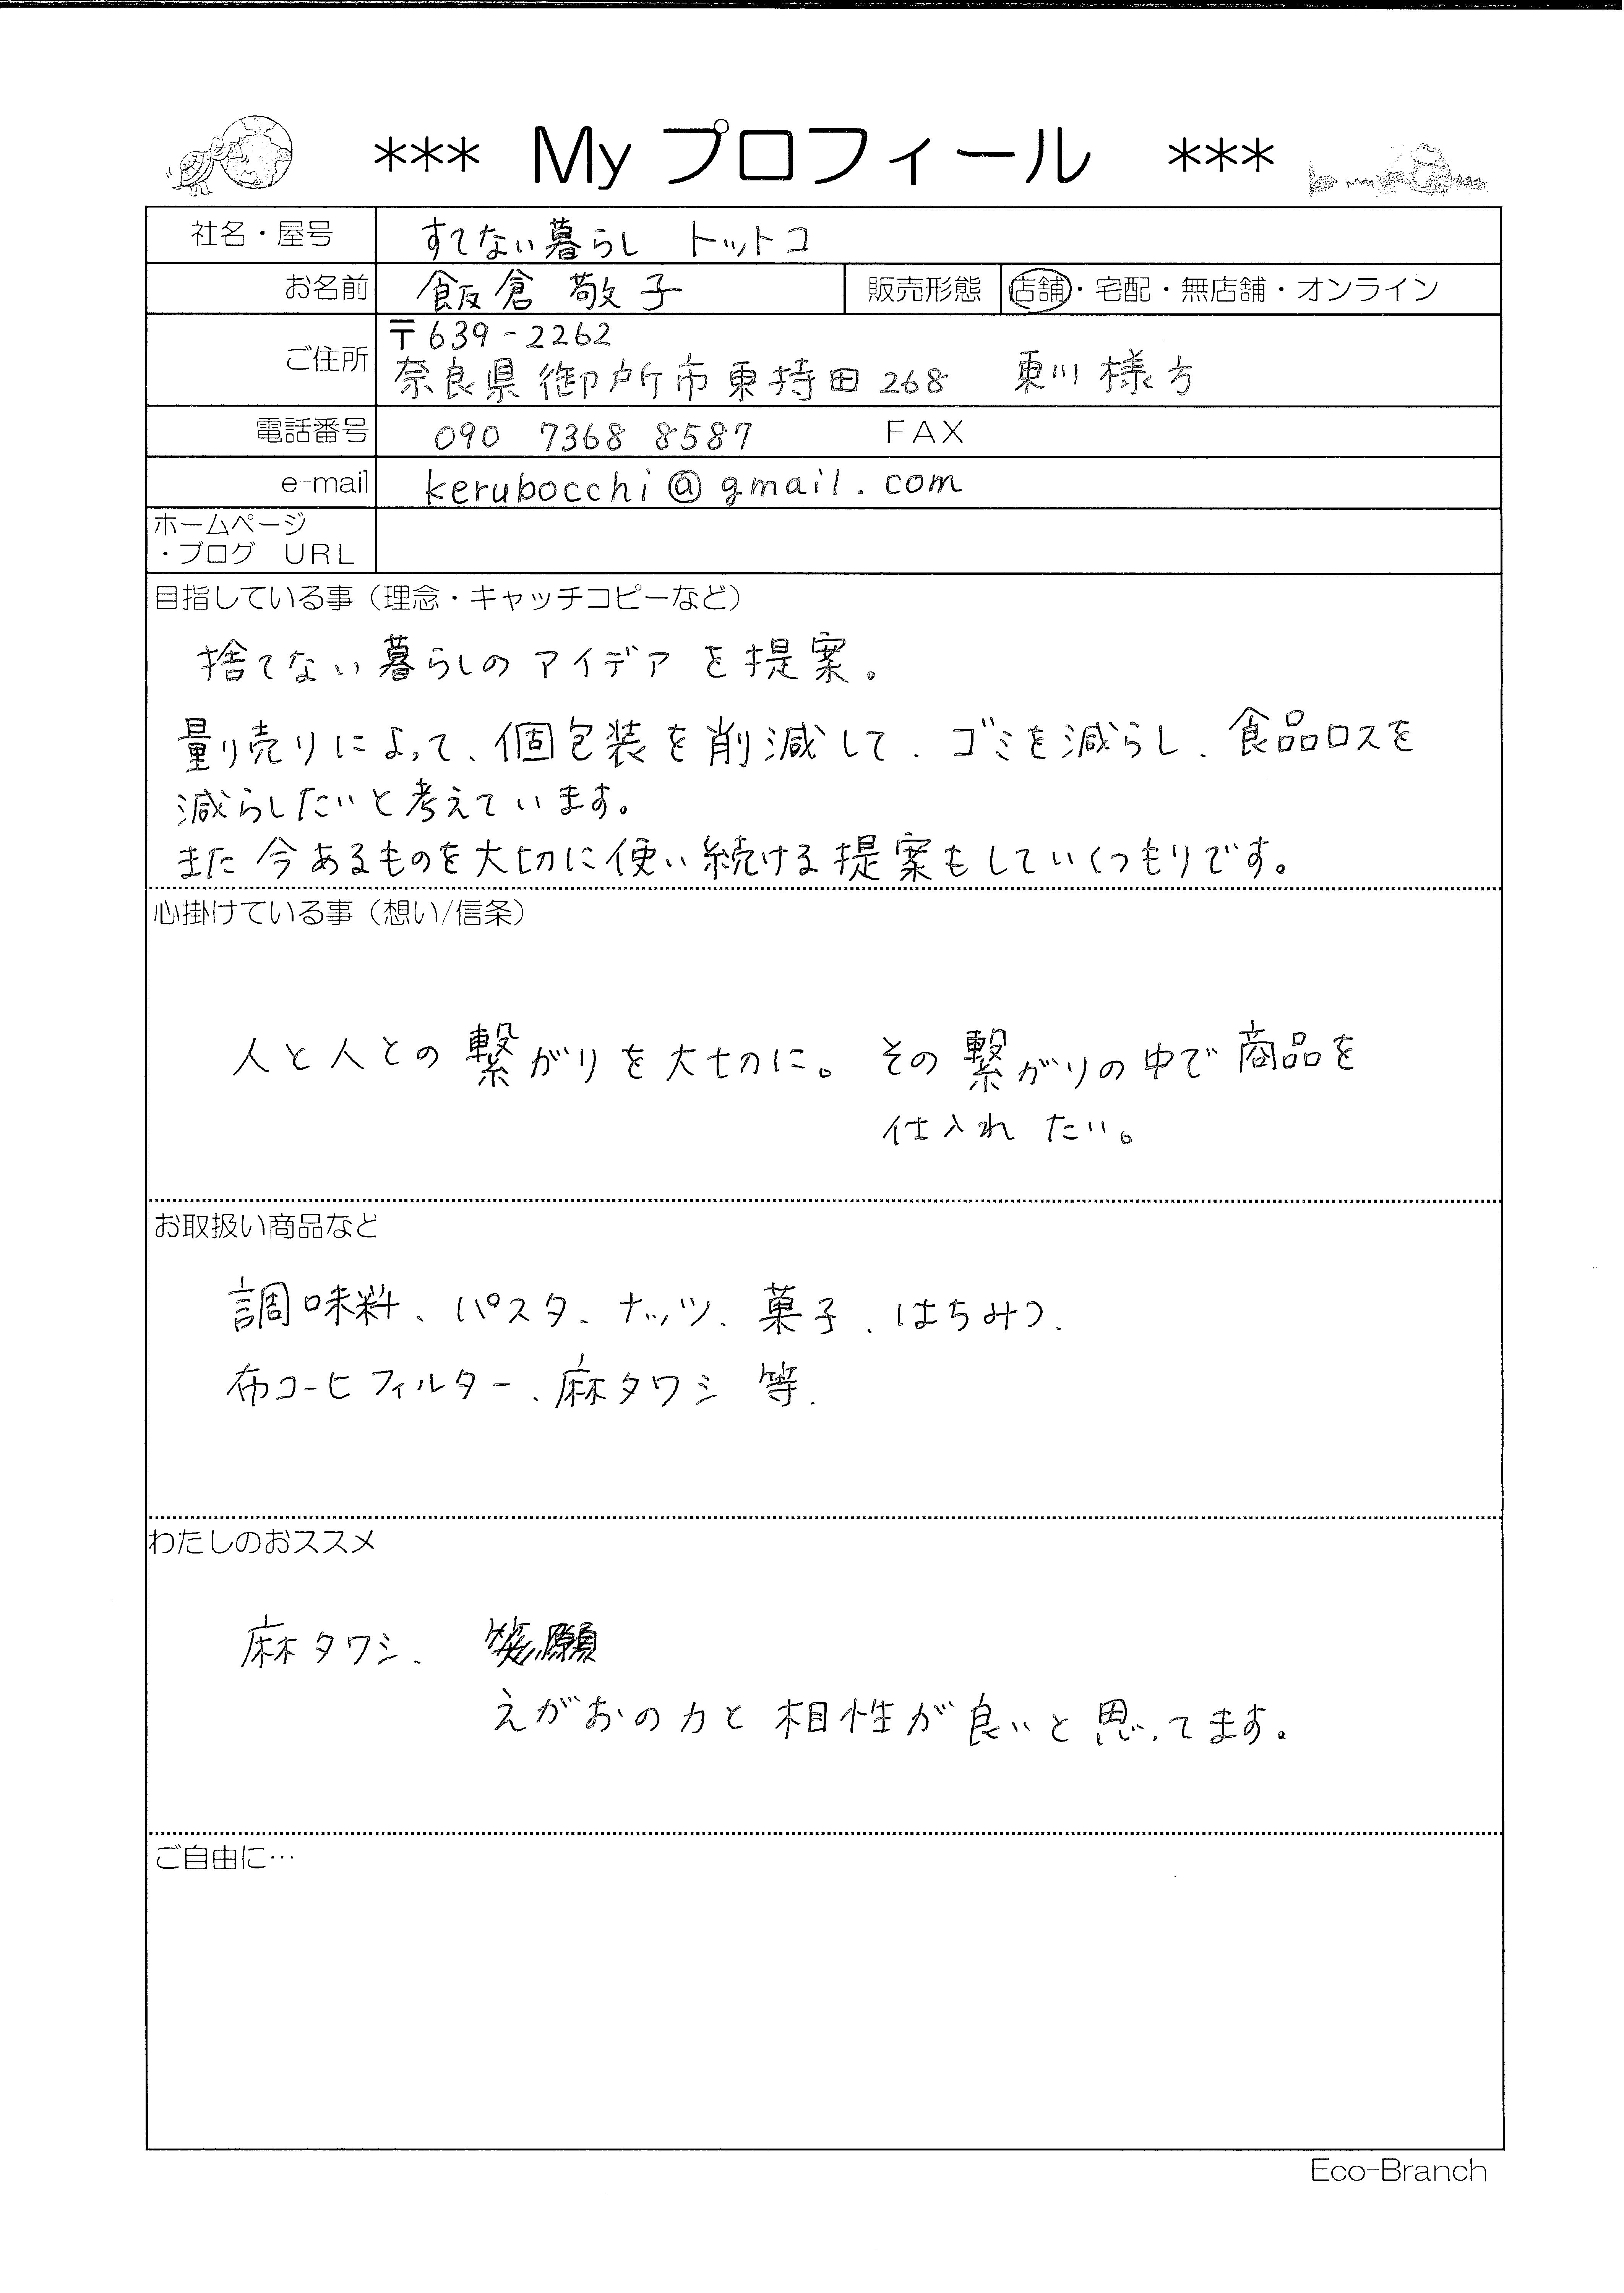 *** My プロフィール ***
社名・屋号 すてない暮らし トットコ
お名前 飯倉 敬子 販売形態 店舗・宅配・無店舗・オンライン
ご住所 〒639-2262
奈良県御所市東持田268 東川様方
電話番号 090 7368 8587 FAX
e-mail kerubocchi@gmail.com
ホームページ
・ブログ URL
目指している事（理念・キャッチコピーなど）
捨てない暮らしのアイデアを提案。
量り売りによって、個包装を削減して、ゴミを減らし、食品ロスを
減らしたいと考えています。
また今あるものを大切に使い続ける提案もしていくつもりです。
心掛けている事（想い/信条）
人と人との繋がりを大切に。その繋がりの中で商品を
仕入れたい。
お取扱い商品など
調味料、パスタ、ナッツ、菓子、はちみつ、
布コーヒフィルター、麻タワシ 等、
わたしのおススメ
麻タワシ、
えがおの力と相性が良いと思ってます。
ご自由に…
Eco-Branch